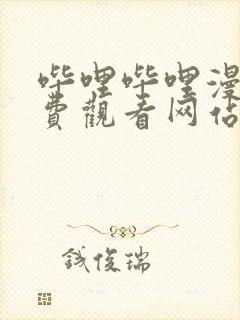 哔哩哔哩漫
費觀看网站
钱俊瑞